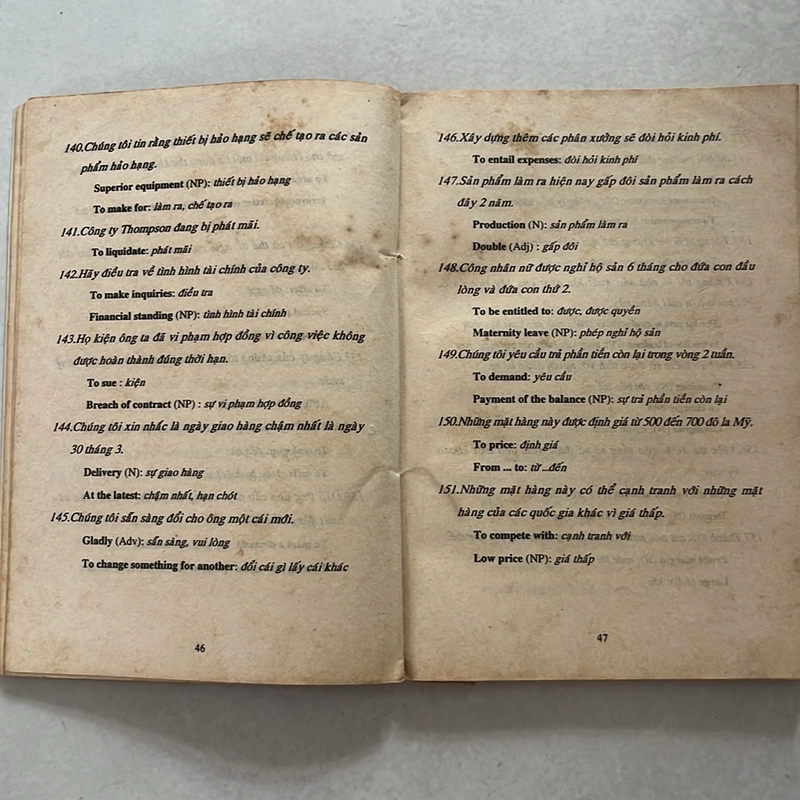 140.Chúng tôi tin rằng thiết bị hảo hạng sẽ chế tạo ra các sản
phẩm hảo hạng.
Superior equipment (NP): thiết bị hảo hạng
To make for: làm ra, chế tạo ra
141.Công ty Thompson đang bị phát mãi.
To liquidate: phát mãi
142.Hãy điều tra về tình hình tài chính của công ty.
To make inquiries: điều tra
Financial standing (NP): tình hình tài chính
143.Họ kiện ông ta đã vi phạm hợp đồng vì công việc không
được hoàn thành đúng thời hạn.
To sue : kiện
Breach of contract (NP) : sự vi phạm hợp đồng
144.Chúng tôi xin nhắc là ngày giao hàng chậm nhất là ngày
30 tháng 3.
Delivery (N): sự giao hàng
At the latest: chậm nhất, hạn chót
145.Chúng tôi sẵn sàng đổi cho ông một cái mới.
Gladly (Adv): sẵn sàng, vui lòng
To change something for another: đổi cái gì lấy cái khác
46
146.Xây dựng thêm các phân xưởng sẽ đòi hỏi kinh phí.
To entail expenses: đòi hỏi kinh phí
147.Sản phẩm làm ra hiện nay gấp đôi sản phẩm làm ra cách
đây 2 năm.
Production (N): sản phẩm làm ra
Double (Adj) : gấp đôi
148.Công nhân nữ được nghỉ hộ sản 6 tháng cho đứa con đầu
lòng và đứa con thứ 2.
To be entitled to: được, được quyền
Maternity leave (NP): phép nghỉ hộ sản
149.Chúng tôi yêu cầu trả phần tiền còn lại trong vòng 2 tuần.
To demand: yêu cầu
Payment of the balance (NP): sự trả phần tiền còn lại
150.Những mặt hàng này được định giá từ 500 đến 700 đô la Mỹ.
To price: định giá
From ... to: từ ...đến
151.Những mặt hàng này có thể cạnh tranh với những mặt
hàng của các quốc gia khác vì giá thấp.
To compete with: cạnh tranh với
Low price (NP): giá thấp
47